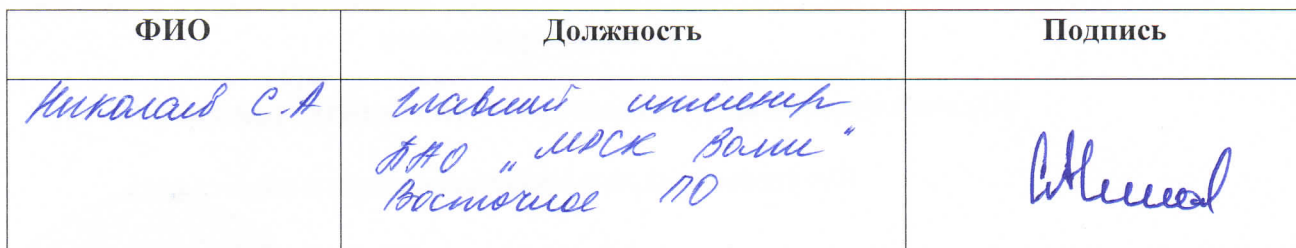 ФИО Должность Подпись
Николаев С.А главный инженер
ПАО "МРСК Волги"
Восточное ПО